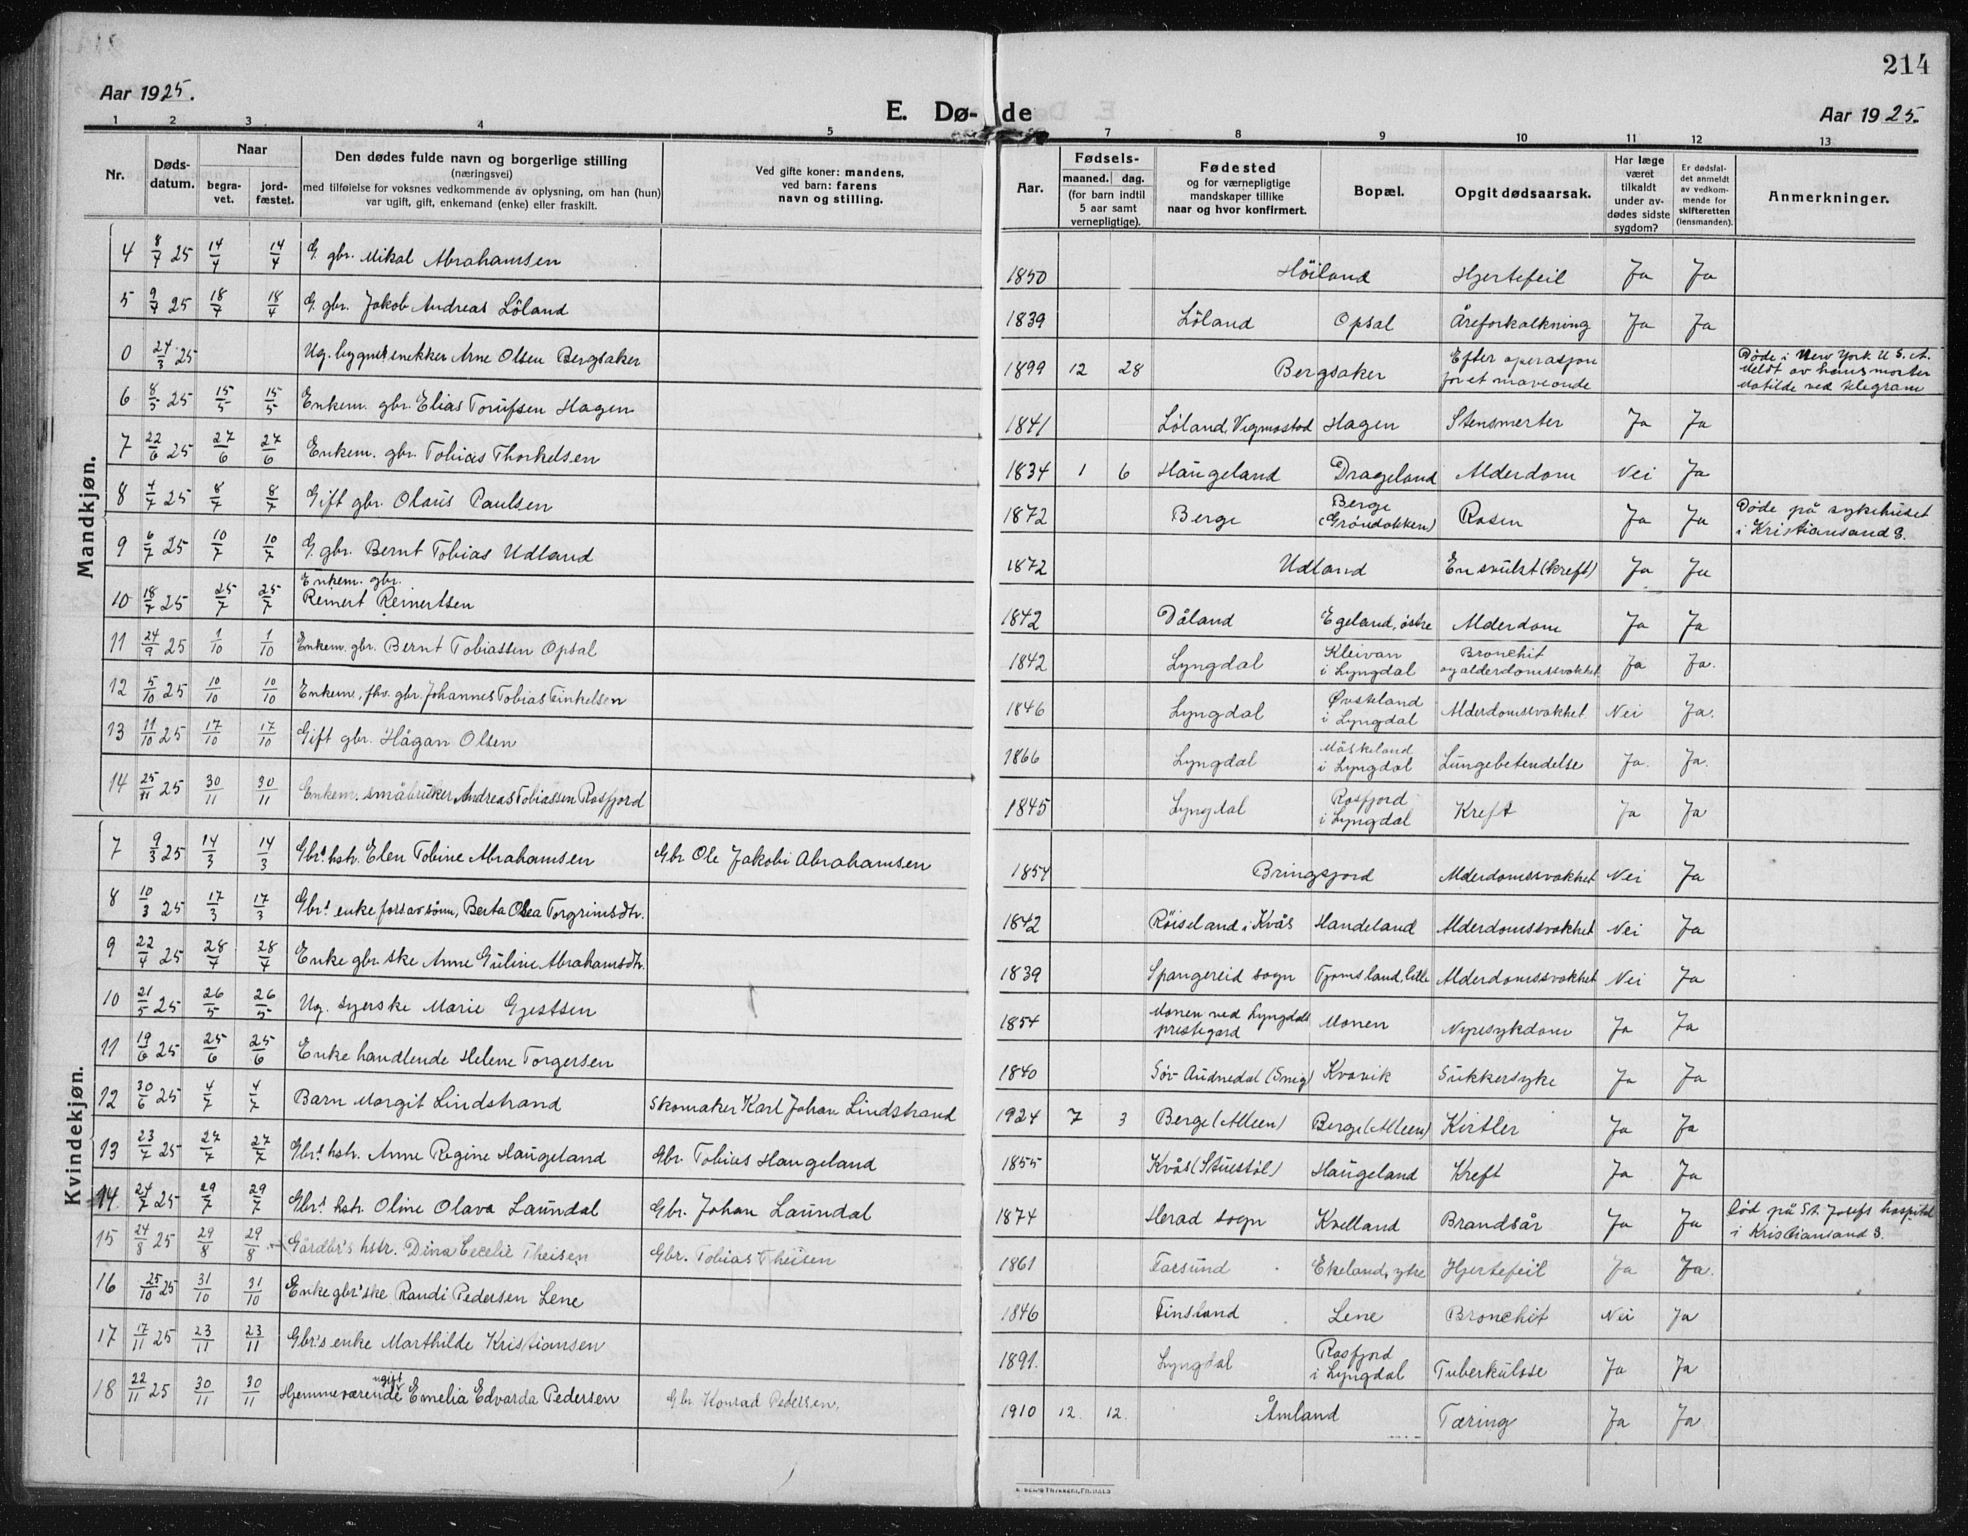 214
Aar 1925.
E. Døde
Aar 1925.
1 2 3 4 5 7 8 9 10 11 12 13
Nr. Døds-datum. Naar begra-vet. jord-fæstet. Den dødes fulde navn og borgerlige stilling (næringsvei) med tilføielse for voksnes vedkommende av oplysning, om han (hun) var ugift, gift, enkemand (enke) eller fraskilt. Ved gifte koner: mandens, ved barn: farens navn og stilling. Aar. Fødsels- maaned. dag. (for barn indtil 5 aar samt vernepligtige). Fødested og for værnepligtige mandskaper tillike naar og hvor konfirmert. Bopæl. Opgit dødsaarsak. Har læge været tilkaldt under av-dødes sidste sygdom? Er dødsfal-det anmeldt av vedkom-mende for skifteretten (lensmanden). Anmerkninger.
Mandkjøn.
4 8/4 25 14/4 14/4 G. gbr. Mikal Abrahamsen 1850 Høiland Hjertefeil Ja Ja
5 9/4 25 18/4 18/4 G. gbr. Jakob Andreas Löland 1839 Löland Opsal Åreforkalkning Ja Ja
0 24/3 25 Ug. bygnetsnekker Arne Olsen Bergsaker 1899 12 28 Bergsaker Efter operasjon for et maveonde Døde i New York U S. A. Meldt av hans morter Matilde ved telegram
6 8/5 25 15/5 15/5 Enkem. gbr. Elias Torufsen Hagen 1841 Løland, Vigmostad Hagen Stensmerter Ja Ja
7 22/6 25 27/6 27/6 Enkem. gbr. Tobias Thorkelsen 1834 1 6 Haugeland Drageland Alderdom Nei Ja
8 4/7 25 8/7 8/7 Gift gbr. Olaus Paulsen 1872 Berge Berge (Grøndokken) Rosen Ja Ja Døde på sykehuset i Kristiansand S.
9 6/7 25 10/7 10/7 G. gbr. Bernt Tobias Udland 1872 Udland En svulst (kreft) Ja Ja
10 18/7 25 25/7 25/7 Enkem. gbr. Reinert Reinertsen 1842 Dåland Egeland, östre Alderdom Ja Ja
11 24/9 25 1/10 1/10 Enkem. gbr. Bernt Tobiassen Opsal 1842 Lyngdal Kleivan i Lyngdal Bronchit og alderdomssvakhet Ja Ja.
12 5/10 25 10/10 10/10 Enkem. fhv. gbr. Johannes Tobias Finkelsen 1846 Lyngdal Øvsteland i Lyngdal Alderdomssvakhet Nei Ja.
13 11/10 25 17/10 17/10 Gift gbr. Hågan Olsen 1866 Lyngdal Måskeland i Lyngdal Lungebetendelse Ja. Ja.
14 25/11 25 30/11 30/11 Enkem. småbruker Andreas Tobiassen Rosfjord 1845 Lyngdal Rosfjord i Lyngdal Kreft Ja Ja
Kvindekjøn.
7 9/3 25 14/3 14/3 Gbr.s hstr. Elen Tobine Abrahamsen Gbr Ole Jakobi Abrahamsen 1854 Bringsjord Alderdomssvakhet Nei Ja
8 10/3 25 17/3 17/3 Gbr.s enke forsavsönn, Berta Olsea Torgrimsdtr. 1842 Röiseland i Kvås Handeland Alderdomssvakhet Nei Ja
9 22/4 25 28/4 28/4 Enke gbr.ske Anne Guline Abrahamsdtr. 1839 Spangereid sogn Tjomsland, lille Alderdomssvakhet Nei Ja
10 21/5 25 26/5 26/5 Ug. syerske Marie Gjestsen 1854 Monen ved Lyngdals prestegard Monen Nyresykdom Ja Ja
11 19/6 25 25/6 25/6 Enke handlende Helene Torgersen 1840 Sör Audnedal (Snig) Kvavik Sukkersyke Ja Ja
12 30/6 25 4/7 4/7 Barn Margit Lindstrand Skomaker Karl Johan Lindstrand 1924 7 3 Berge (Alleen) Berge (Alleen) Kirtler Ja Ja
13 23/7 25 27/7 27/7 Gbr.s hstr. Anne Regine Haugeland Gbr. Tobias Haugeland 1855 Kvås (Stuestöl) Haugeland Kreft Ja Ja
14. 24/7 25 29/7 29/7 Gbr.s hstr. Oline Olava Laundal Gbr. Johan Laundal 1874 Herad sogn Kvelland Brandsår Ja Ja Död på St. Josefs hospital i Kristiansand S.
15 24/8 25 29/8 29/8 Gårdbr's hstr. Dina Cecelie Theisen Gbr. Tobias Theisen 1861 Farsund Ekeland, ytre Hjertefeil Ja Ja.
16 25/10 25 31/10 31/10 Enke gbr'ske Randi Pedersen Lene 1846 Finsland Lene Bronchit Nei Ja
17 17/11 25 23/11 23/11 Gbr.'s enke Marthilde Kristiansen 1891. Lyngdal Rosfjord i Lyngdal Tuberkulose Ja Ja
18 22/11 25 30/11 30/11 Hjemmeværende ugift Emelia Edvarda Pedersen Gbr. Konrad Pedersen. 1910 12. 12. Åmland Tæring Ja Ja